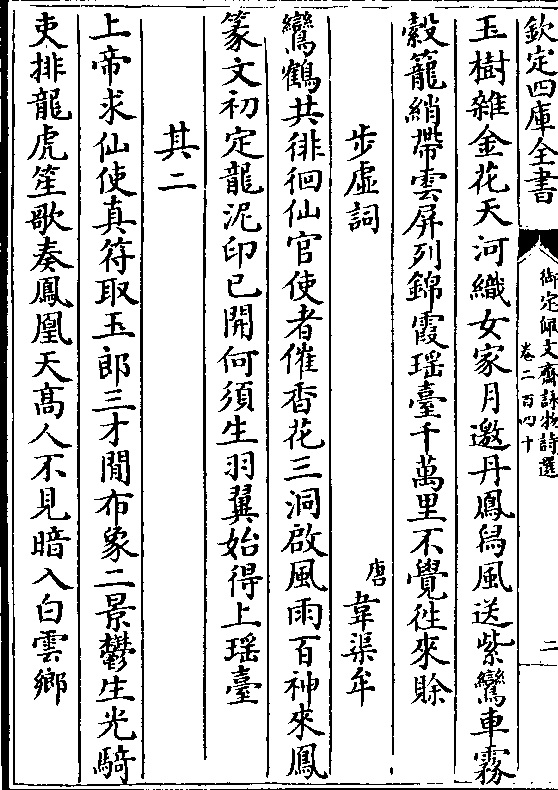 欽定四庫全書
御定佩文齋詠物詩選
卷二百四十
二
玉樹雜金花天河織女家月邀丹鳳舄風送紫鸞車霧
縠籠綃帶雲屏列錦霞瑶臺千萬里不覺徃來賒
步虛詞
唐韋渠牟
鸞鶴共徘徊仙官使者催香花三洞啟風雨百神來鳳
篆文初定龍泥印已開何須生羽翼始得上瑶臺
其二
上帝求仙使真符取玉郎三才閒布象二景鬱生光騎
吏排龍虎笙歌奏鳳凰天髙人不見暗入白雲鄉